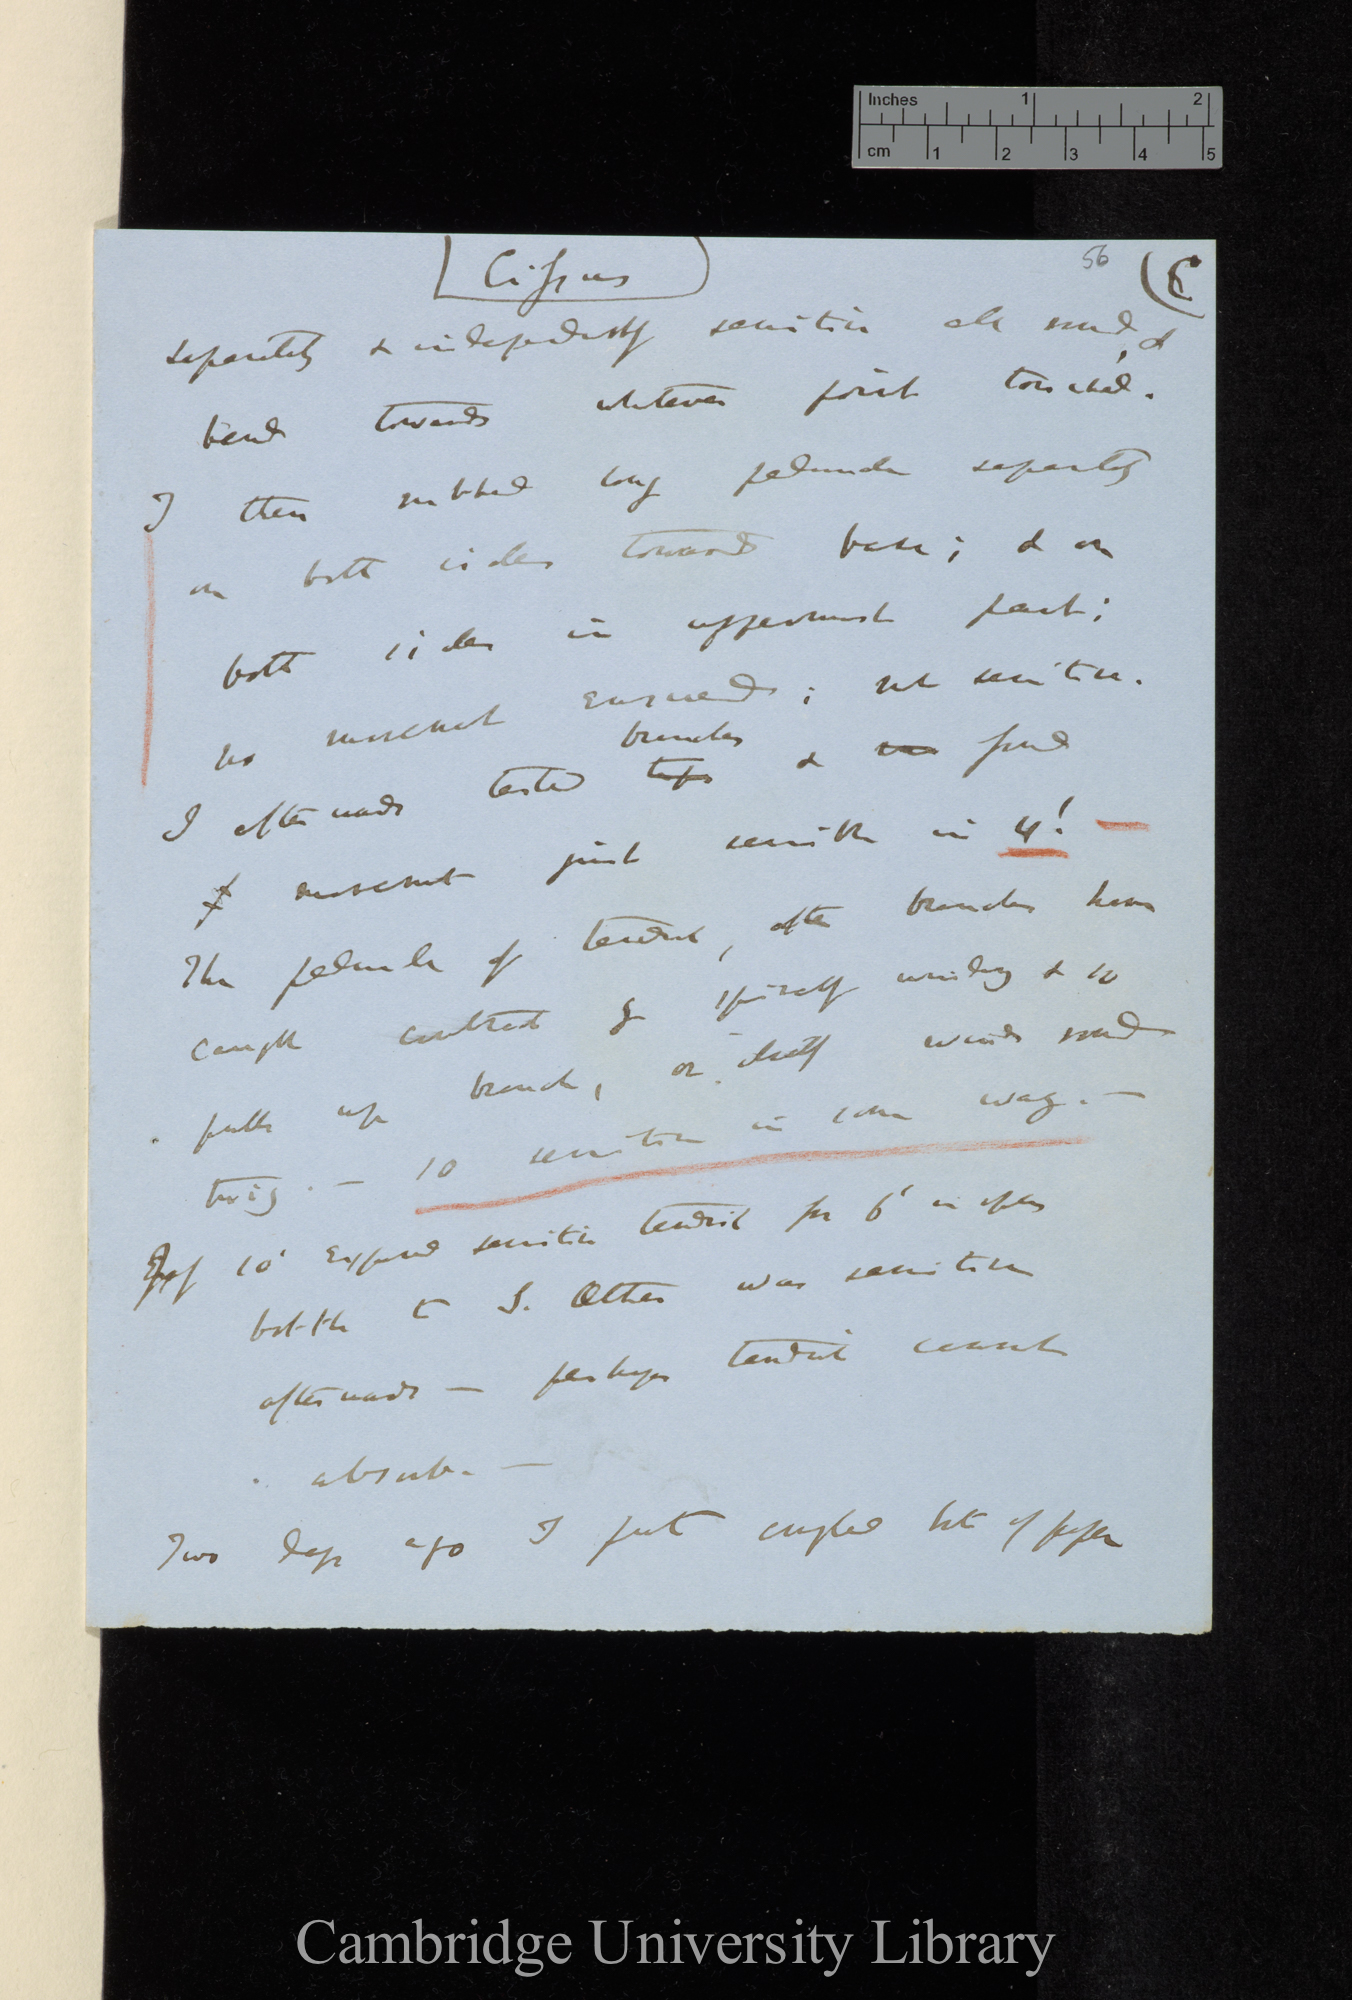 Inches 1 2
cm 1 2 3 4 5
Cissus
56
(6
separately & independently sensitive all round, &
bend towards whatever point touched.
I then rubbed long peduncle separately
on both sides toward base; & on
both sides in uppermost part;
no movement ensued; not sensitive.
I afterwards tested tips branches & found
movement just sensible in 4'!
The peduncle of tendril, after branches have
caught contract by spirally winding & so
pulls up branch, or itself winds round
twig. — so sensitive in some way. —
10' exposed sensitive tendril for 6' in open
bottle to S. Ether was sensitive
afterwards — perhaps tendril cannot
absorb. —
Two days ago I put bit of paper
Cambridge University Library